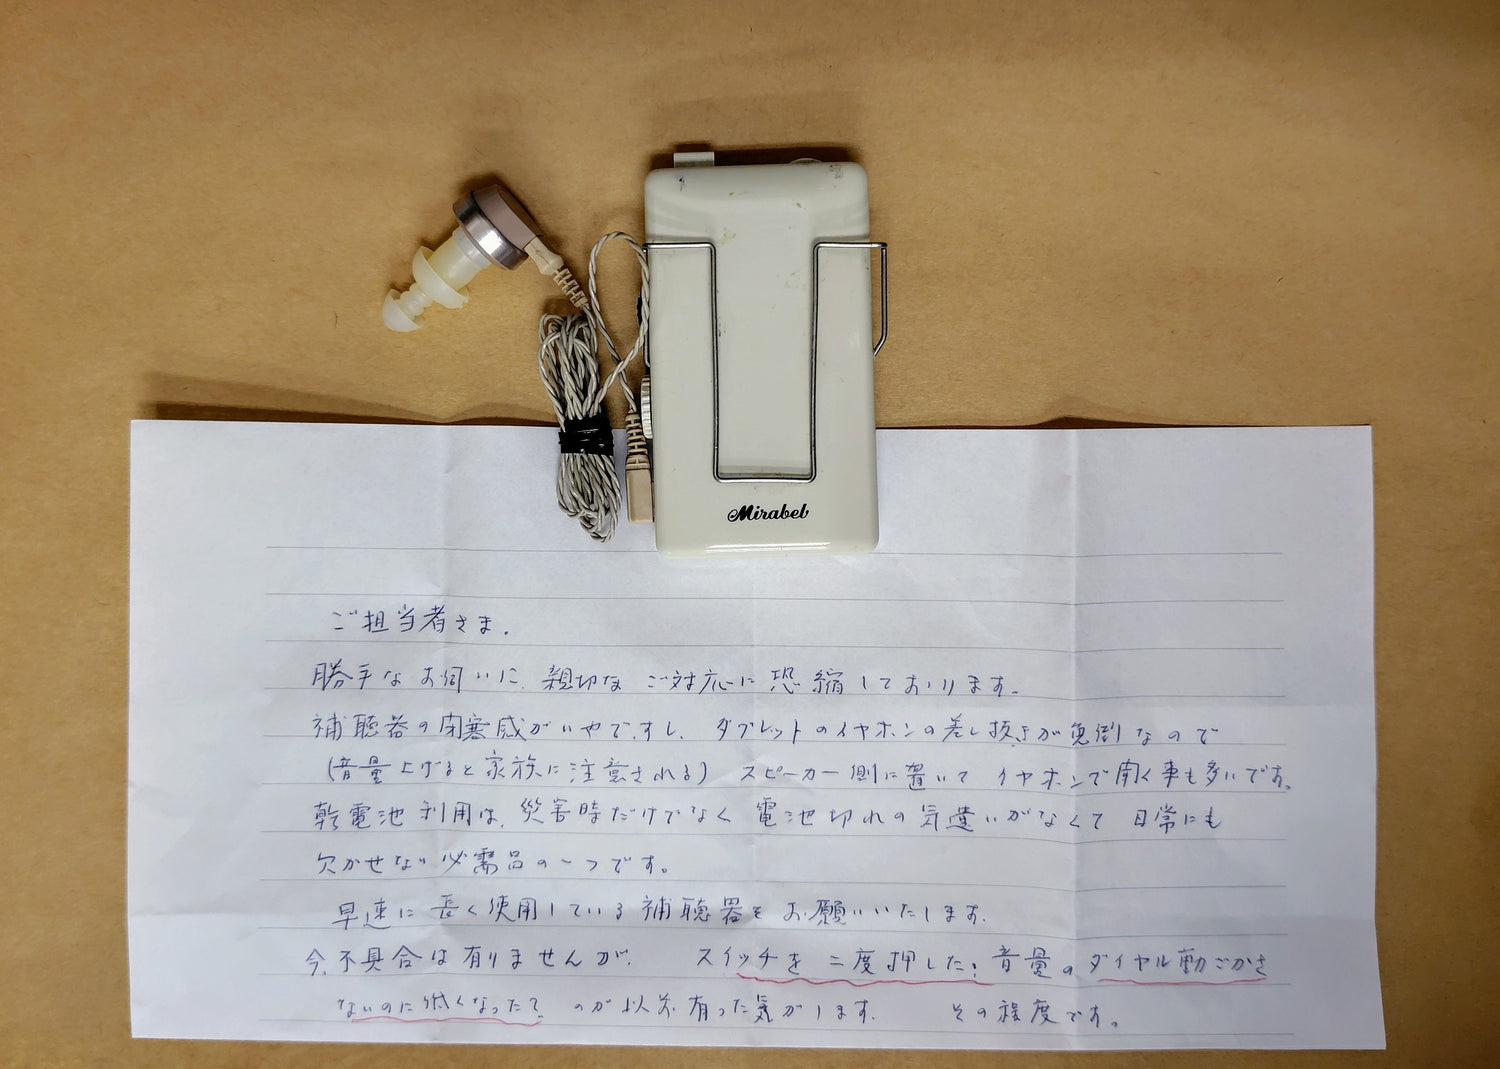 Mirabel
ご担当者さま.
勝手なお伺いに、親切なご対応に恐縮しております。
補聴器の閉塞感がいやですし、タブレットのイヤホンの差し抜きが面倒なので
(音量上げると家族に注意される) スピーカー側に置いてイヤホンで聞く事も多いです。
乾電池利用は、災害時だけでなく電池切れの気遣いがなくて日常にも
欠かせない必需品の一つです。
早速に長く使用している補聴器をお願いいたします。
今、不具合は有りませんが、スイッチを二度押した? 音量のダイヤル動ごかさ
ないのに低くなった? のが以前有った気がします。 その程度です。